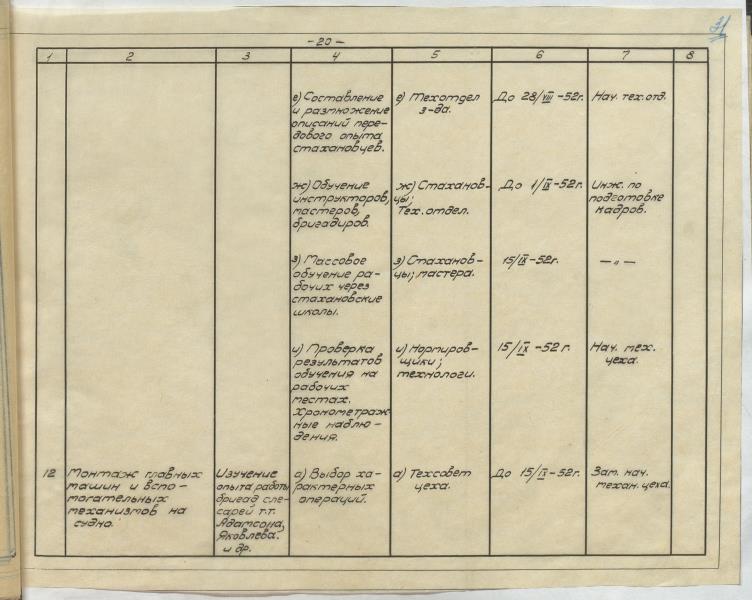 -20-
1 2 3 4 5 6 7 8
е) Составление
и размножение
описаний пере-
дового опыта
стахановцев.
е) Техотдел
з-да.
До 28/VIII-52г.
Нач. тех.отд.
ж) Обучение
инструкторов,
мастеров,
бригадиров.
ж) Стаханов-
цы;
Тех.отдел.
До 1/IX-52г.
Инж. по
подготовке
кадров.
з) Массовое
обучение ра-
бочих через
стахановские
школы.
з) Стаханов-
цы; мастера.
15/IX-52г.
— „ —
и) Проверка
результатов
обучения на
рабочих
местах.
Хронометраж-
ные наблю-
дения.
и) Нормиров-
щики;
технологи.
15/IX-52г.
Нач. мех.
цеха.
12
Монтаж главных
машин и вспо-
могательных
механизмов на
судно.
Изучение
опыта работы
бригад сле-
сарей т.т.
Адамсона,
Яковлева.
и др.
а) Выбор ха-
рактерных
операций.
а) Техсовет
цеха.
До 15/IX-52г.
Зам. нач.
механ. цеха.